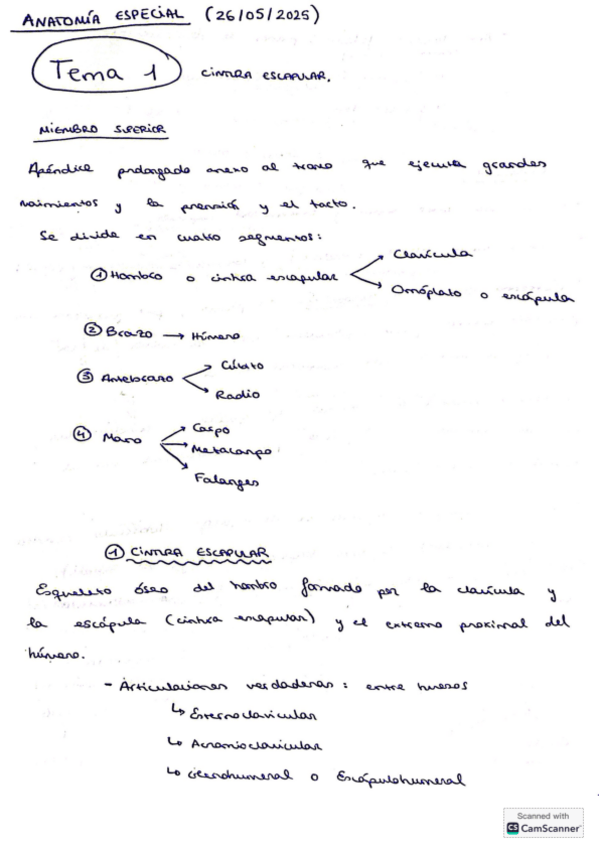 ANATOMÍA ESPECIAL (26/05/2025)
Tema 1 CINTURA ESCAPULAR.
MIEMBRO SUPERIOR
Apéndice prolongado anexo al tronco que ejecuta grandes
movimientos y la prensión y el tacto.
Se divide en cuatro segmentos:
① Hombro o cintura escapular → Clavícula
→ Omóplato o escápula
② Brazo → Húmero
③ Antebrazo → Cúbito
→ Radio
④ Mano → Carpo
→ Metacarpo
→ Falanges
① CINTURA ESCAPULAR
Esqueleto óseo del hombro formado por la clavícula y
la escápula (cintura escapular) y el extremo proximal del
húmero.
- Articulaciones verdaderas: entre huesos
↳ Esternoclavicular
↳ Acromioclavicular
↳ Glenohumeral o Escápulohumeral
Scanned with
CS CamScanner